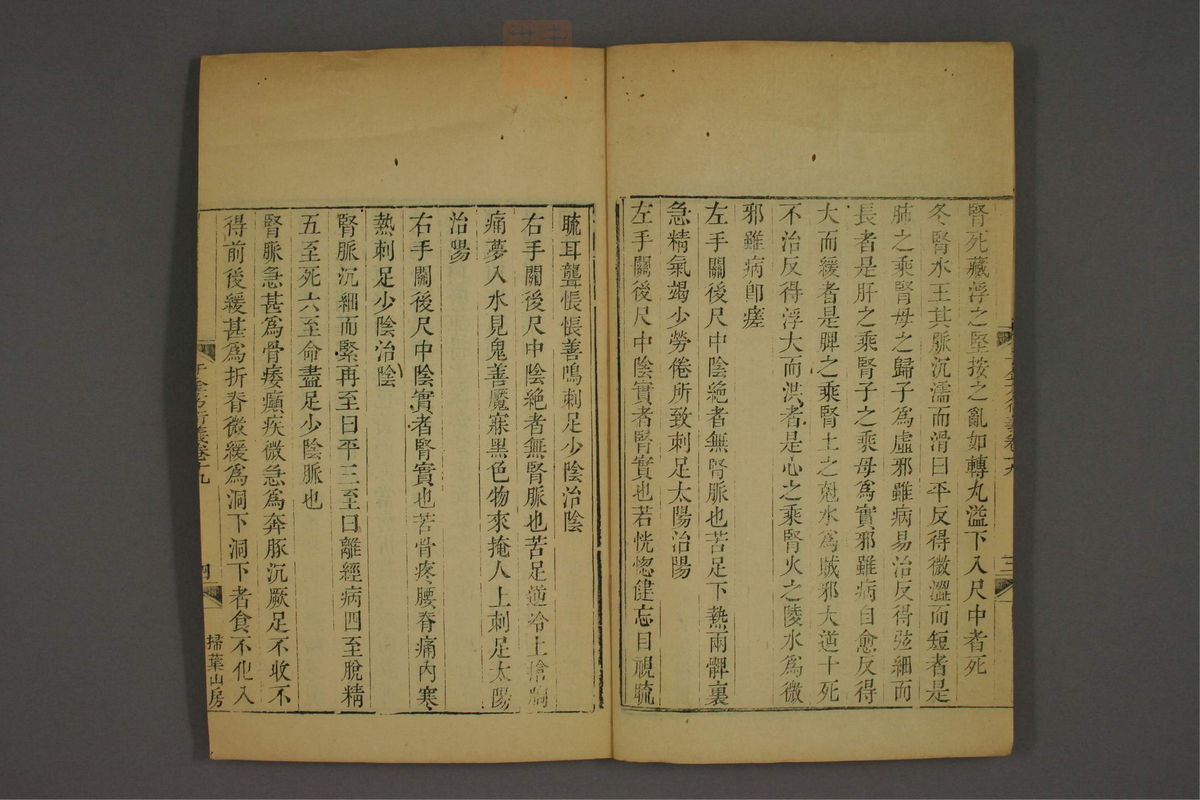 腎死藏浮之堅按之亂如轉丸溢下入尺中者死
冬腎水王其脈沉濡而滑曰平反得微澀而短者是
肺之乘腎母之歸子爲虛邪雖病易治反得弦細而
長者是肝之乘腎子之乘母爲實邪雖病自愈反得
大而緩者是脾之乘腎土之尅水爲賊邪大逆十死
不治反得浮大而洪者是心之乘腎火之陵水爲微
邪雖病卽瘥
左手關後尺中陰絕者無腎脈也苦足下熱兩髀裏
急精氣竭少勞倦所致刺足太陽治陽
左手關後尺中陰實者腎實也苦恍惚健忘目視𥆨
𥆨耳聾悵悵善鳴刺足少陰治陰
右手關後尺中陰絕者無腎脈也苦足逆冷上搶胸
痛夢入水見鬼善魘寐黑色物來掩人上刺足太陽
治陽
右手關後尺中陰實者腎實也苦骨疼腰脊痛內寒
熱刺足少陰治陰
腎脈沉細而緊再至曰平三至曰離經病四至脫精
五至死六至命盡足少陰脈也
腎脈急甚爲骨痿癲疾微急爲奔豚沉厥足不收不
得前後緩甚爲折脊微緩爲洞下洞下者食不化入
千金方衍義卷十九
四
掃葉山房